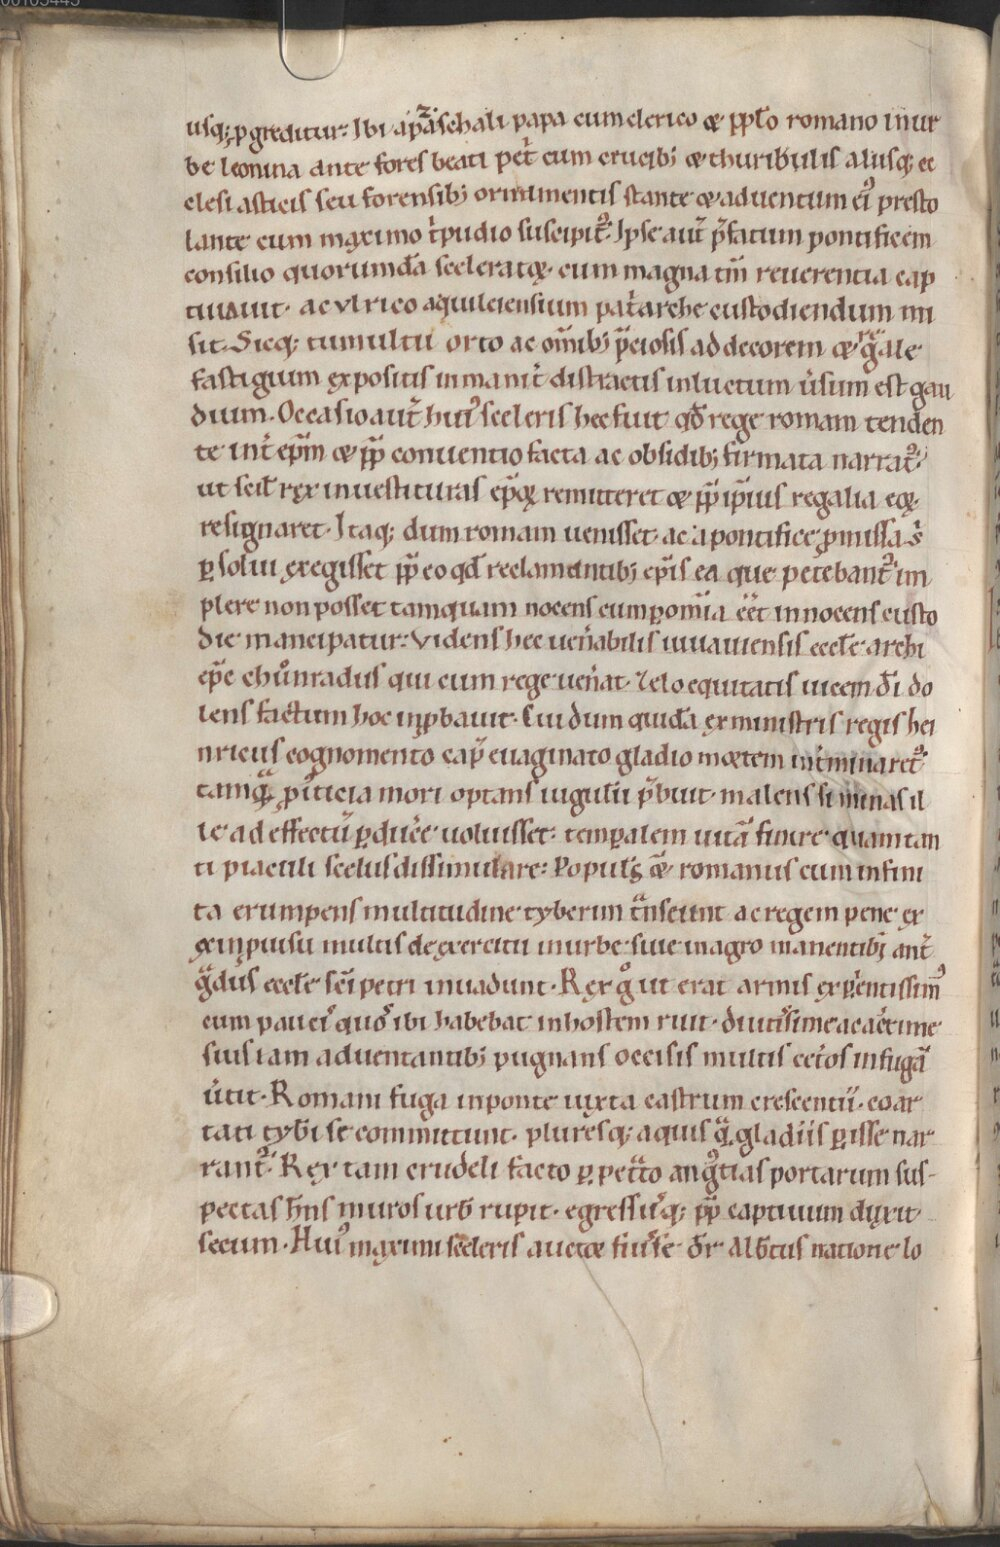 usq; ꝓgreditur. Ibi a paschali papa cum clerico ⁊ ppl̅o romano in ur
be leonina ante fores beati pet̅ cum crucib; ⁊ thuribulis aliisq; ec
clesiasticis seu forensib; ornamentis stante ⁊ aduentum ei᾿ presto
lante cum maximo t̅pudio suscipit᾿. Ipse aut̅ p̅fatum pontificem
consilio quorunda̅ sceleratoꝝ. cum magna tm̅ reuerentia cap
tiuauit. ac vlrico aquileiensium pat̅arche custodiendum mi
sit. Sicq; tumultu orto ac om̅ib; p̅ciosis ad decorem ⁊ regale
fastigium expositis inmanit̅ distractis in luctum u̅sum est gau
dium. Occasio aut̅ hui᾿ sceleris hec fuit qd̅ rege romam tenden
te int̅ ep̅m ⁊ pp̅ conuentio facta ac obsidib; firmata narrat᾿.
ut scil̅ rex inuestituras ep̅oꝝ remitteret ⁊ pp̅ ip̅ius regalia eoꝝ
resignaret. Itaq; dum romam uenisset. ac a pontifice ꝓmissa s̅
ꝑsolui exegisset pp̅ eo qd̅ reclamantib; ep̅is ea que petebant᾿ im
plere non posset tamquam nocens cum ꝑ om̅ia e̅et innocens custo
die mancipatur. Videns hec uen̅abilis iuuauensis eccl̅e archi
ep̅c chůnradus qui cum rege uen̅at. zelo equitatis uicem d̅i do
lens factum hoc inꝓbauit. Cui dum quida̅ ex ministris regis hei
nricus cognomento cap̅ euaginato gladio mortem int̅minaret᾿.
tamqua̅ ꝓ iusticia mori optans iugulu̅ p̅buit. malens si minas il
le ad effectu̅ ꝑduce̅ uoluisset. temꝑalem uita̅ finire quam tan
ti piaculi scelus dissimulare. Populus q̅ romanus cum infini
ta erumpens multitudine tyberim t̅nseunt ac regem pene ex
ex inpuisu multis de exercitu in urbe siue in agro manentib; ant̅
g̅dus eccl̅e sc̅i petri inuadunt. Rex g᾿ ut erat armis exꝑientissim᾿
cum pauci᾿ quo᾿ ibi habebat in hostem ruit. diutissime ac acerrime
suis iam aduentantib; pugnans occisis multis cet̅os in fuga̅
u̅tit. Romani fuga in ponte iuxta castrum crescentii. coar
tati tyb̅i se committunt. pluresq; aquis qua̅ gladiis ꝑisse nar
rant᾿. Rex tam crudeli facto ꝑpetrato angustias portarum sus-
pectas hn̅s muros urb̅ rupit. egressusq; pp̅ captiuum duxit
secum. Hui᾿ maximi sceleris auctor fuisse d̅r Alb̅tus natione lo